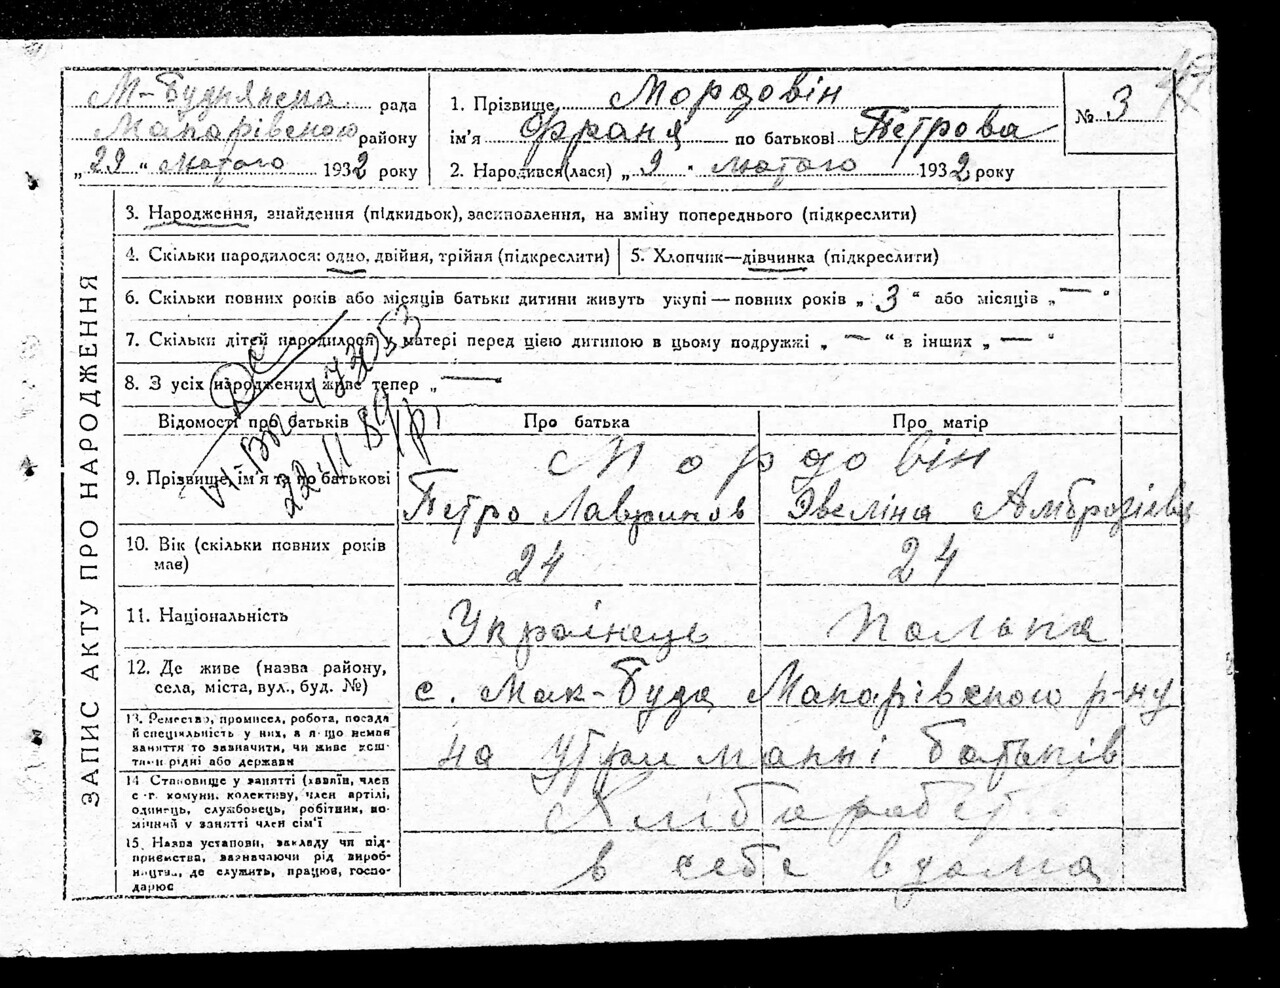 М-Буднянська рада
Макарівського району
„ 29 “ лютого 1932 року
1. Прізвище Мордовін
ім'я Франя по батькові Петрова
2. Народився(лася) „ 9 “ лютого 1932 року
№ 3
ЗАПИС АКТУ ПРО НАРОДЖЕННЯ
3. Народження, знайдення (підкидьок), засиновлення, на зміну попереднього (підкреслити)
4. Скільки народилося: одно, двійня, трійня (підкреслити)
5. Хлопчик—дівчинка (підкреслити)
6. Скільки повних років або місяців батьки дитини живуть укупі — повних років „ 3 “ або місяців „ — “
7. Скільки дітей народилося у матері перед цією дитиною в цьому подружжі „ — “ в інших „ — “
8. З усіх народжених живе тепер „ —
22 11 89
Відомості про батьків
Про батька
Про матір
9. Прізвище, ім'я та по батькові
Мордовін
Петро Лавринов
Эвеліна Амброзієва
10. Вік (скільки повних років
має)
24
24
11. Національність
Українець
Полька
12. Де живе (назва району,
села, міста, вул., буд. №)
с. Мак-Буда Макарівського р-ну
13. Ремество, промисел, робота, посада
й спеціяльність у них, а якщо немає
заняття то зазначити, чи живе кош-
тами рідні або держави
на утриманні батьків
14. Становище у занятті (хазяїн, член
с.-г. комуни, колективу, член артілі,
одинець, службовець, робітник, по-
мічний у занятті член сім'ї
Хлібороб
15. Назва установи, закладу чи під-
приємства, зазначаючи рід вироб-
ництва, де служить, працює, госпо-
дарює
в себе вдома